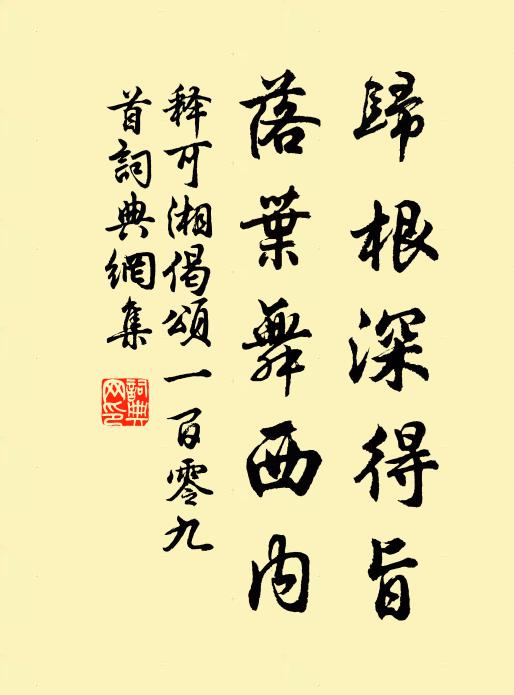 歸根深得旨
落葉舞西內
释可湘偈頌一百零九
首詞典網集
詞典
网印